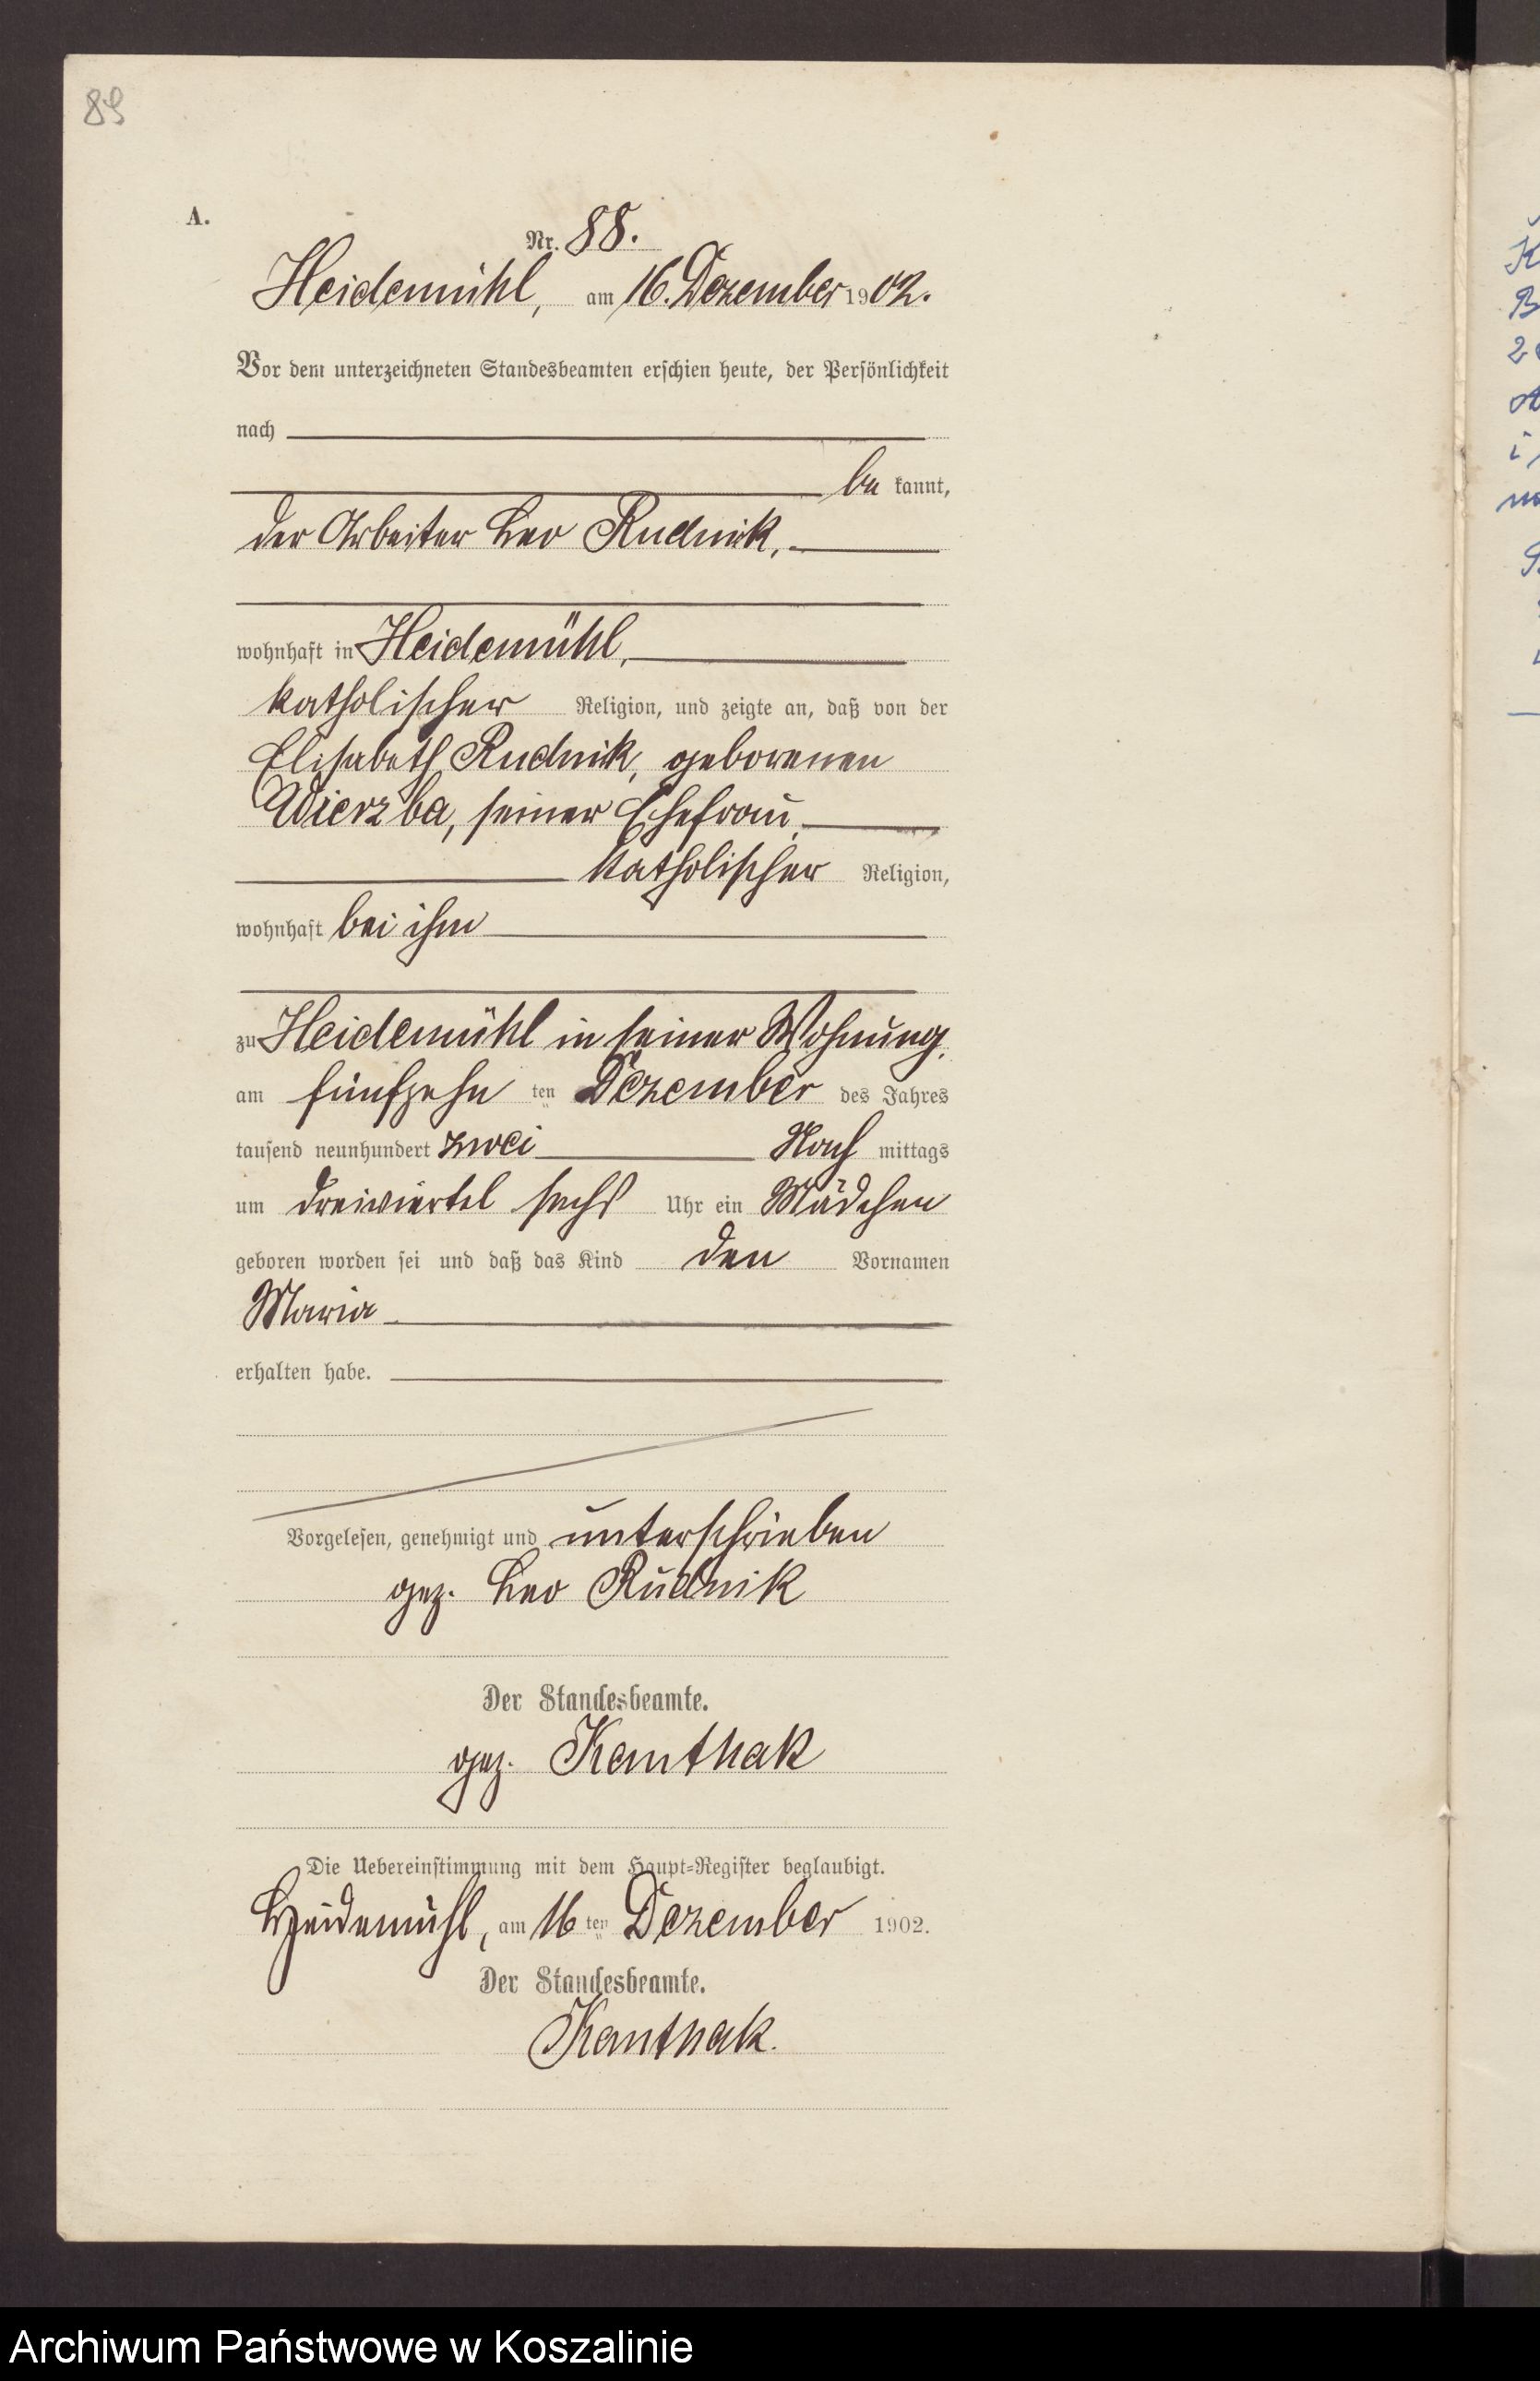 89
A.
Nr. 88.
Heidemühl, am 16. Dezember 1902.
Vor dem unterzeichneten Standesbeamten erschien heute, der Persönlichkeit
nach
be kannt,
der Arbeiter Leo Rudnik,
wohnhaft in Heidemühl,
katholischer Religion, und zeigte an, daß von der
Elisabeth Rudnik, geborenen
Wierzba, seiner Ehefrau,
katholischer Religion,
wohnhaft bei ihm
zu Heidemühl in seiner Wohnung,
am fünfzehn ten Dezember des Jahres
tausend neunhundert zwei Nach mittags
um dreiviertel sechs Uhr ein Mädchen
geboren worden sei und daß das Kind den Vornamen
Maria
erhalten habe.
Vorgelesen, genehmigt und unterschrieben
gez. Leo Rudnik
Der Standesbeamte.
gez. Kanthak
Die Uebereinstimmung mit dem Haupt-Register beglaubigt.
Heidemühl, am 16 ten Dezember 1902.
Der Standesbeamte.
Kanthak.
Archiwum Państwowe w Koszalinie